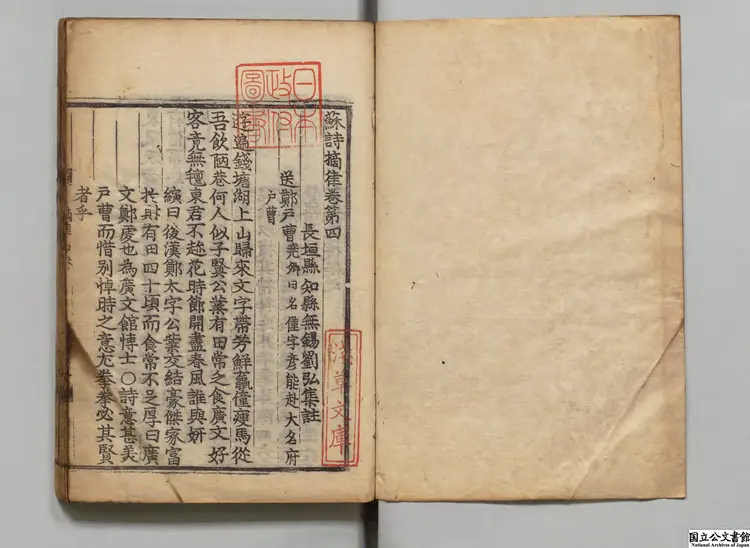 蘇詩摘律卷第四
長垣縣知縣無錫劉弘集註
送鄭戶曹堯卿曰名僅字彥能赴大名府
戶曹
遶遍錢塘湖上山歸來文字帶芳鮮羸僮瘦馬從
吾飲陋巷何人似子賢公業有田常乏食廣文好
客竟無氊東君不趂花時節開盡春風誰與妍
縯曰後漢鄭太字公業交結豪傑家富
於財有田四十頃而食常不足厚曰廣
文鄭虔也為廣文館博士〇詩意甚美
戶曹而惜別悼時之意尤拳拳必其賢
者乎
日本
政府
圖書
淺草文庫
国立公文書館
National Archives of Japan